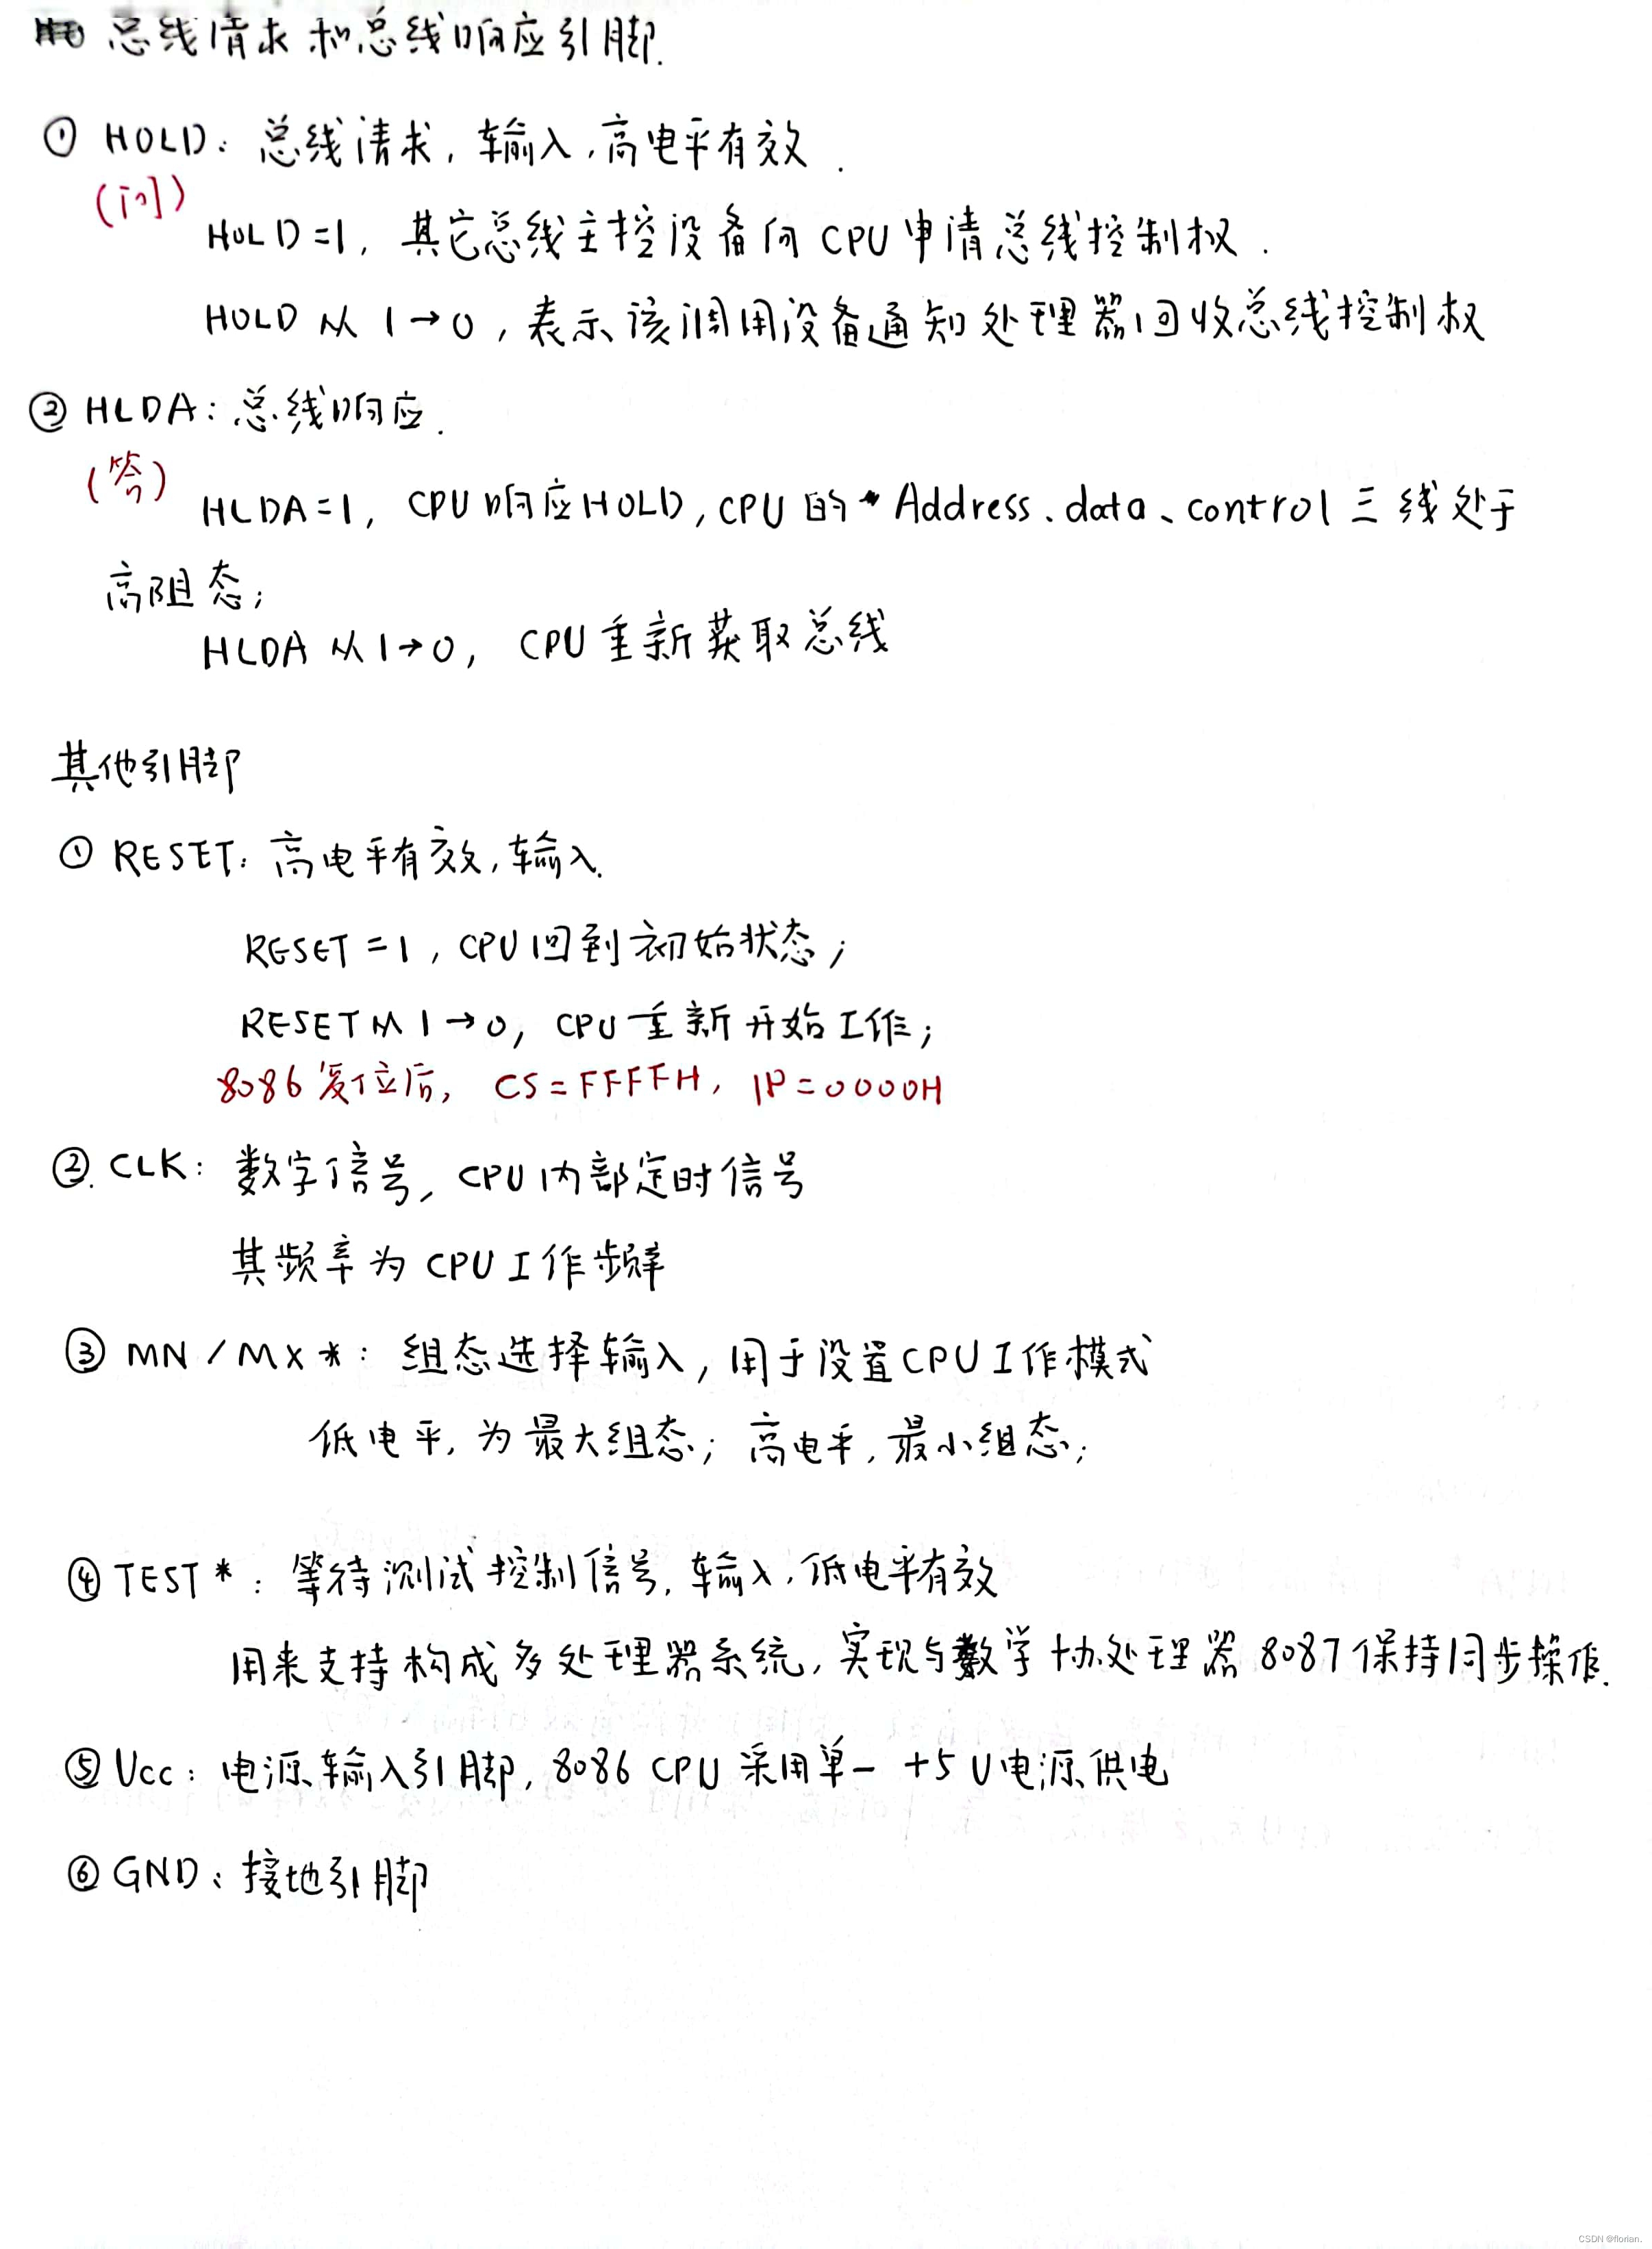 总线请求和总线响应引脚.
① HOLD: 总线请求, 输入, 高电平有效.
(问)
HOLD=1, 其它总线主控设备向 CPU 申请总线控制权.
HOLD 从 1→0, 表示该调用设备通知处理器回收总线控制权
② HLDA: 总线响应.
(答)
HLDA=1, CPU 响应HOLD, CPU 的 Address、data、control 三线处于
高阻态;
HLDA 从1→0, CPU 重新获取总线
其他引脚
① RESET: 高电平有效, 输入.
RESET=1, CPU 回到初始状态;
RESET从1→0, CPU 重新开始工作;
8086 复位后, CS=FFFFH, IP=0000H
② CLK: 数字信号, CPU 内部定时信号
其频率为 CPU 工作频率
③ MN/MX*: 组态选择输入, 用于设置CPU工作模式
低电平, 为最大组态; 高电平, 最小组态;
④ TEST*: 等待测试控制信号, 输入, 低电平有效
用来支持构成多处理器系统, 实现与数学协处理器 8087 保持同步操作.
⑤ Vcc: 电源输入引脚, 8086 CPU 采用单一 +5V电源供电
⑥ GND: 接地引脚
CSDN @florian.